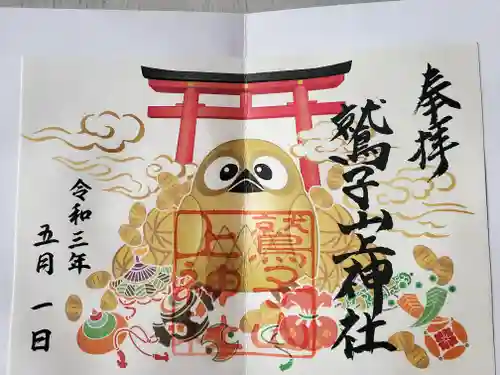 奉拝
鷲子山上神社
令和三年
五月一日